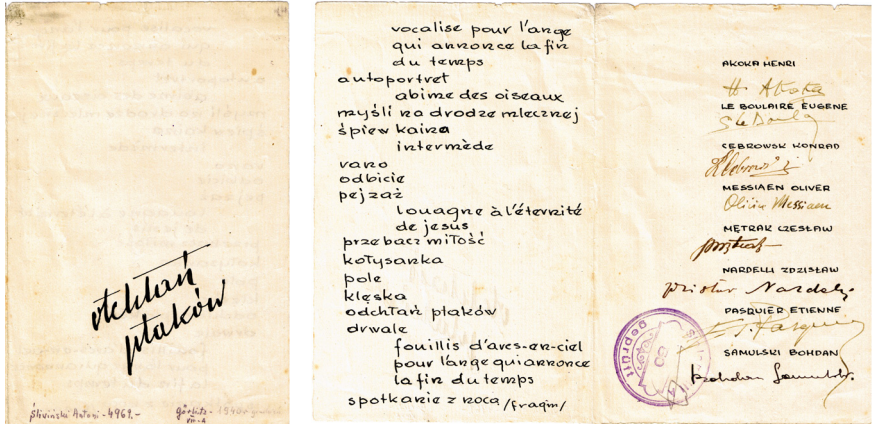 otchłań
ptaków
śliwiński Antoni - 4969.-
görlitz - 1940 - grudzień
VIII-A
vocalise pour l'ange
qui annonce la fin
du temps
autoportret
abime des oiseaux
myśli na drodze mlecznej
śpiew kaina
intermède
rano
odbicie
pejzaż
louagne à l'éternité
de jesus
przebacz miłość
kołysanka
pole
klęska
odchłań ptaków
drwale
fouillis d'arcs-en-ciel
pour l'ange qui annonce
la fin du temps
spotkanie z nocą /fragm/
AKOKA HENRI
H Akoka
LE BOULAIRE EUGENE
CEBROWSK KONRAD
MESSIAEN OLIVER
Olivier Messiaen
MĘTRAK CZESŁAW
NARDELLI ZDZISŁAW
Nardelli
PASQUIER ETIENNE
E. Pasquier
SAMULSKI BOHDAN
Bohdan Samulski
Geprüft